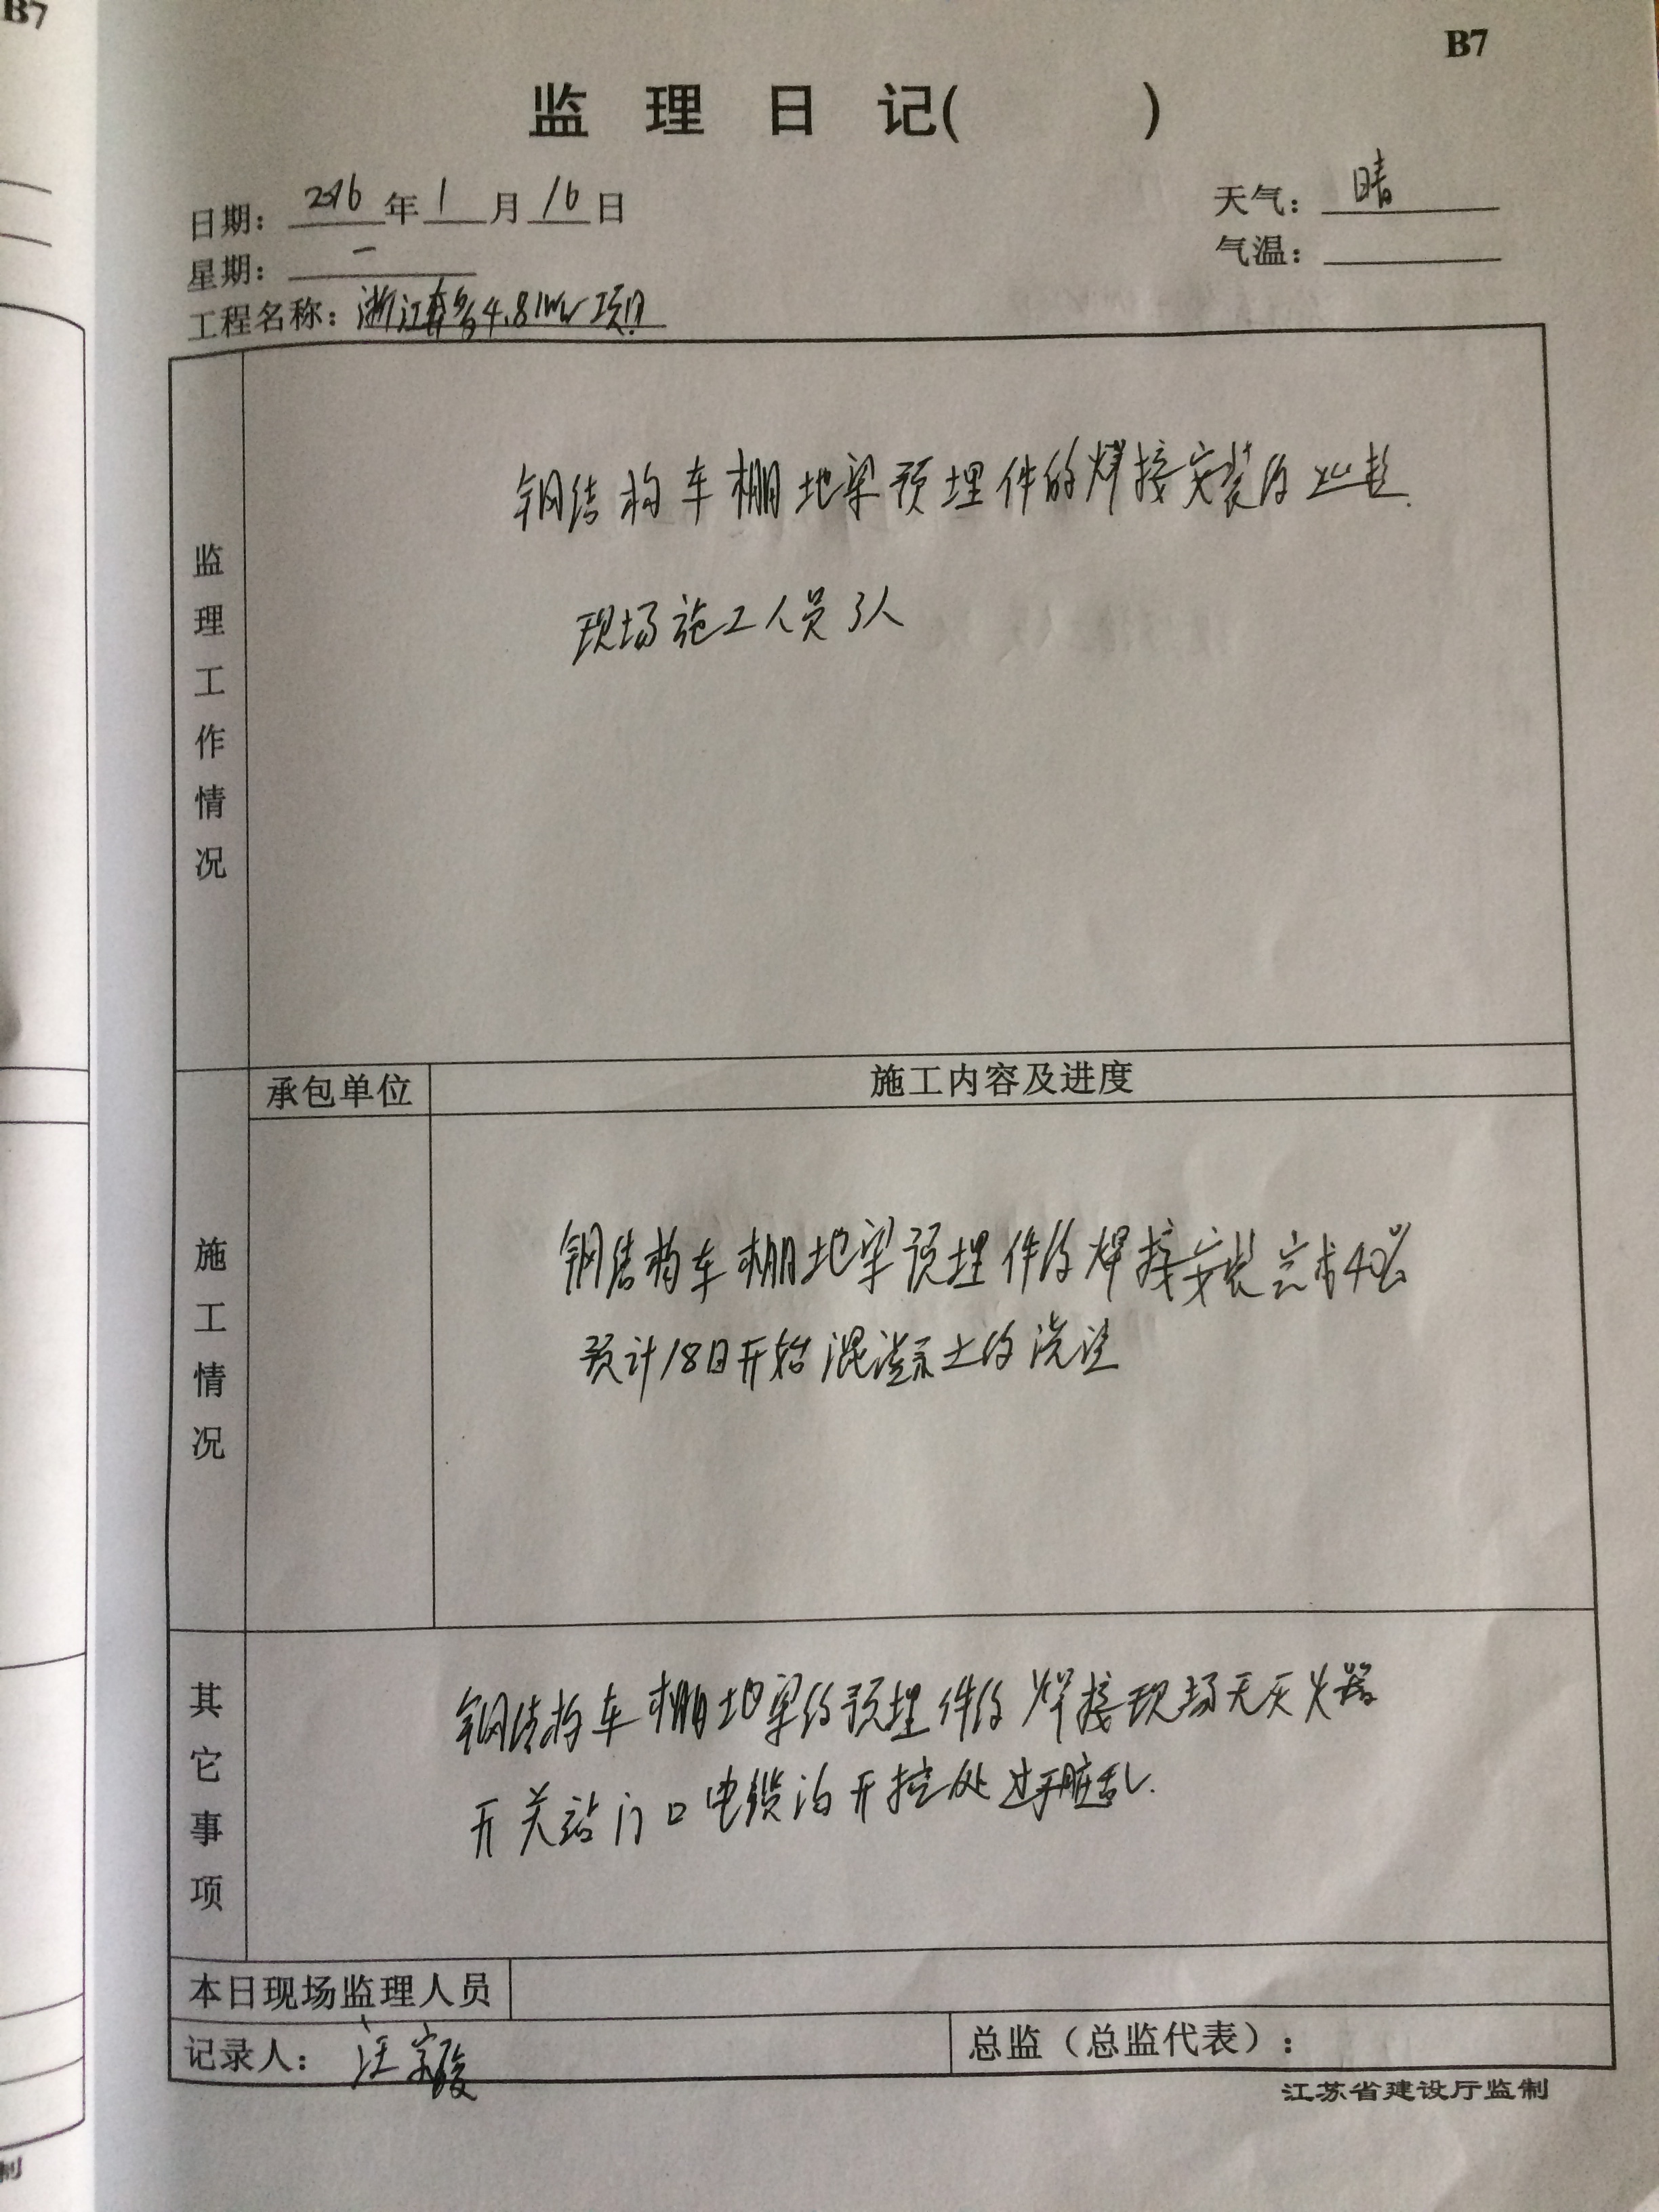 B7
B7
监理日记( )
日期: 2016年1月16日
天气: 晴
星期: 一
气温:
工程名称: 浙江奔多4.8MW项目
监理工作情况
钢结构车棚地梁预埋件的焊接安装的
现场施工人员3人
承包单位
施工内容及进度
施工情况
钢结构车棚地梁预埋件的焊接安装完成40%
预计18日开始混凝土的浇注
其它事项
钢结构车棚地梁的预埋件的焊接现场无灭火器
开关站门口电缆沟开挖处过于脏乱.
本日现场监理人员
记录人: 汪
总监（总监代表）:
江苏省建设厅监制
制